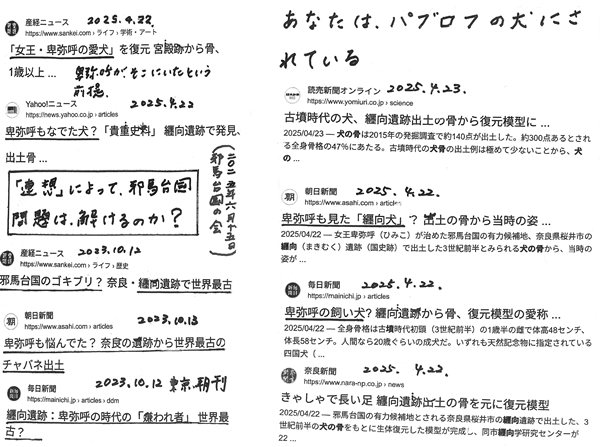 産経ニュース 2025.4.22.
https://www.sankei.com › ライフ › 学術・アート
「女王・卑弥呼の愛犬」を復元 宮殿跡から骨、
1歳以上 ... 卑弥呼が、そこにいたという
前提.
Yahoo!ニュース 2025.4.22
https://news.yahoo.co.jp › articles
卑弥呼もなでた犬？「貴重史料」 纒向遺跡で発見、
出土骨 ...
「連想」によって、邪馬台国
問題は、解けるのか？
(二〇二五年六月十五日)
邪馬台国の会
産経ニュース 2023.10.12
https://www.sankei.com › ライフ › 歴史
邪馬台国のゴキブリ？ 奈良・纒向遺跡で世界最古
朝日新聞 2023.10.13
https://www.asahi.com › articles
卑弥呼も悩んでた？ 奈良の遺跡から世界最古の
チャバネ出土
毎日新聞 2023.10.12 東京.朝刊
https://mainichi.jp › articles › ddm
纒向遺跡：卑弥呼の時代の「嫌われ者」 世界最
古？
あなたは、パブロフの犬にさ
れている
読売新聞オンライン 2025.4.23.
https://www.yomiuri.co.jp › science
古墳時代の犬、纒向遺跡出土の骨から復元模型に ...
2025/04/23 — 犬の骨は2015年の発掘調査で約140点が出土した。約300点あるとされ
る全身骨格の47％にあたる。古墳時代の犬骨の出土例は極めて少ないことから、犬
の ...
朝日新聞 2025.4.22.
https://www.asahi.com › articles
卑弥呼も見た「纒向犬」？ 出土の骨から当時の姿 ...
2025/04/22 — 女王卑弥呼（ひみこ）が治めた邪馬台国の有力候補地、奈良県桜井市の
纒向（まきむく）遺跡（国史跡）で出土した3世紀前半とみられる犬の骨から、当時の
姿が ...
毎日新聞 2025.4.22.
https://mainichi.jp › articles
卑弥呼の飼い犬? 纒向遺跡から骨、復元模型の愛称 ...
2025/04/22 — 全身骨格は古墳時代初頭（3世紀前半）の1歳半の雌で体高48センチ、
体長58センチ。人間なら20歳ぐらいの成犬だ。いずれも天然記念物に指定されている
四国犬（ ...
奈良新聞 2025. 4.22.
https://www.nara-np.co.jp › news
きゃしゃで長い足 纒向遺跡出土の骨を元に復元模型
2025/04/22 — 邪馬台国の有力候補地とされる奈良県桜井市の纒向遺跡で出土した、3
世紀前半の犬の骨をもとに生体復元した模型が完成し、同市纒向学研究センターが
22 ...